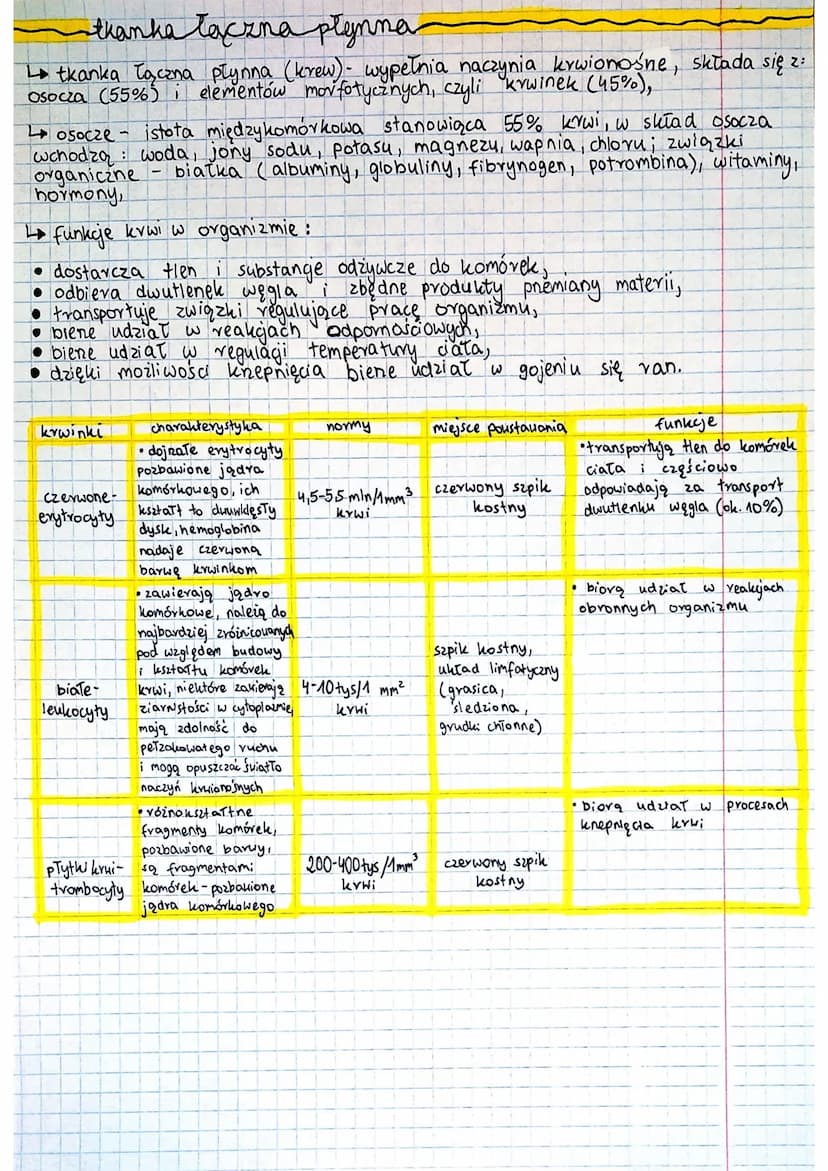 tkanka łączna płynna
↳ tkanka łączna płynna (krew) - wypełnia naczynia krwionośne, składa się z:
osocza (55%) i elementów morfotycznych, czyli krwinek (45%),
↳ osocze - istota międzykomórkowa stanowiąca 55% krwi, w skład osocza
wchodzą: woda, jony sodu, potasu, magnezu, wapnia, chloru; związki
organiczne - białka (albuminy, globuliny, fibrynogen, potrombina), witaminy,
hormony,
↳ funkcje krwi w organizmie:
• dostarcza tlen i substancje odżywcze do komórek,
• odbiera dwutlenek węgla i zbędne produkty przemiany materii,
• transportuje związki regulujące pracę organizmu,
• bierze udział w reakcjach odpornościowych,
• bierze udział w regulacji temperatury ciała,
• dzięki możliwości krzepnięcia bierze udział w gojeniu się ran.
krwinki charakterystyka normy miejsce powstawania funkcje
czerwone-
erytrocyty
• dojrzałe erytrocyty
pozbawione jądra
komórkowego, ich
kształt to dwuwklęsły
dysk, hemoglobina
nadaje czerwoną
barwę krwinkom
4,5-5,5 mln/1mm³
krwi
czerwony szpik
kostny
• transportują tlen do komórek
ciała i częściowo
odpowiadają za transport
dwutlenku węgla (ok. 10%)
białe-
leukocyty
• zawierają jądro
komórkowe, należą do
najbardziej zróżnicowanych
pod względem budowy
i kształtu komórek
krwi, niektóre zawierają
ziarnistości w cytoplazmie,
mają zdolność do
pełzakowatego ruchu
i mogą opuszczać światło
naczyń krwionośnych
4-10 tyś/1 mm²
krwi
szpik kostny,
układ limfatyczny
(grasica,
śledziona,
grudki chłonne)
• biorą udział w reakcjach
obronnych organizmu
płytki krwi-
trombocyty
• różnokształtne
fragmenty komórek,
pozbawione barwy,
są fragmentami
komórek - pozbawione
jądra komórkowego
200-400 tyś/1mm³
krwi
czerwony szpik
kostny
• biorą udział w procesach
krzepnięcia krwi